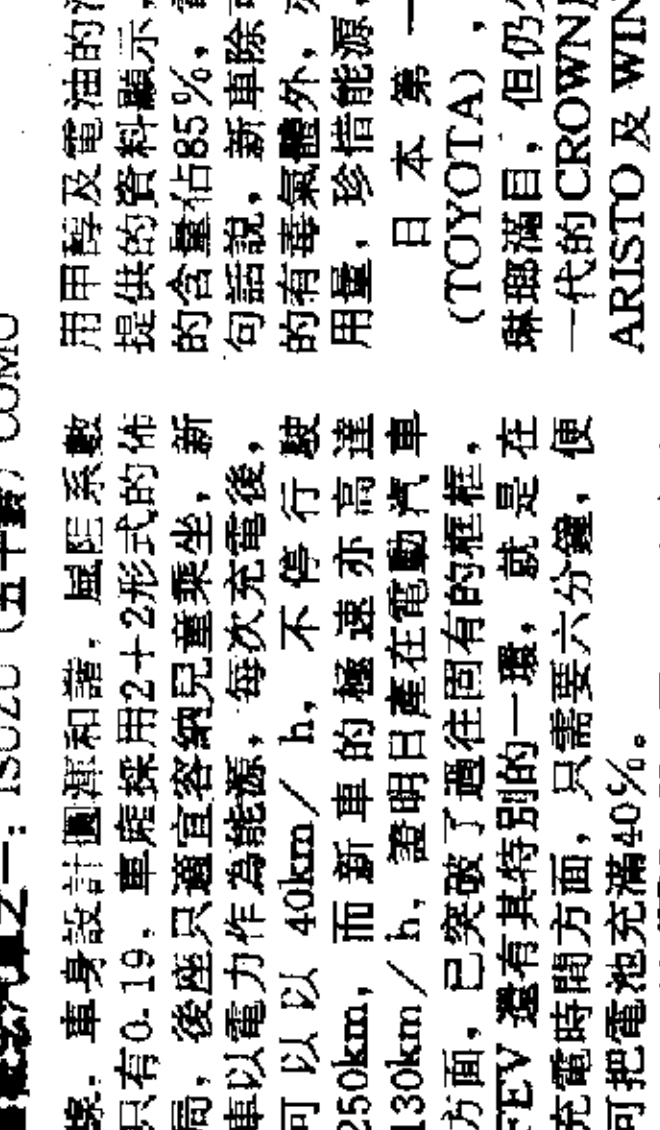 概念汽車之一：ISUZU（五十鈴）COMO
車身設計圓渾和諧，風阻系數
只有0.19，車庭採用2＋2形式的佈
局，後座只適宜容納兒童乘坐，新
車以電力作為能源，每次充電後，
可以以 40km／h，不停行駛
250km，而新車的極速亦高達
130km／h，證明日產在電動汽車
方面，已突破了過往固有的框框，
FEV 還有其特別的一環，就是在
充電時間方面，只需要六分鐘，便
可把電池充滿40%。
用甲醇及電油的
提供的資料顯示，
的含量佔85%，
句話說，新車除
的有毒氣體外，
用量，珍惜能源，
日本第一
(TOYOTA)，
琳瑯滿目，但仍
一代的 CROWN
ARISTO 及 WIN